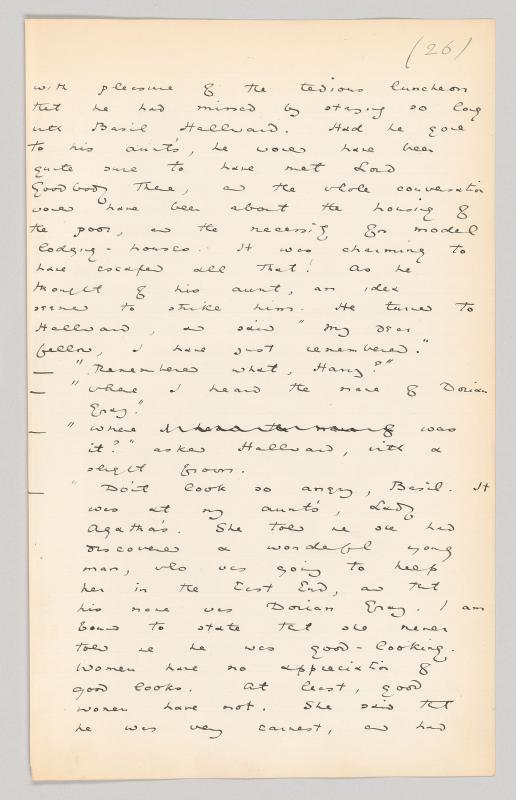 (26)
with pleasure of the tedious luncheon
that he had missed by staying so long
with Basil Hallward. Had he gone
to his aunt's, he would have been
quite sure to have met Lord
Goodbody there, and the whole conversation
would have been about the housing of
the poor, and the necessity for model
lodging-houses. It was charming to
have escaped all that! As he
thought of his aunt, an idea
seemed to strike him. He turned to
Hallward, and said "My dear
fellow, I have just remembered."
— "Remembered what, Harry?"
— "Where I heard the name of Dorian
Gray."
— "Where I heard the name of was
it?" asked Hallward, with a
slight frown.
— "Don't look so angry, Basil. It
was at my aunt's, Lady
Agatha's. She told me she had
discovered a wonderful young
man, who was going to help
her in the East End, and that
his name was Dorian Gray. I am
bound to state that she never
told me he was good-looking.
Women have no appreciation of
good looks. At least, good
women have not. She said that
he was very earnest, and had